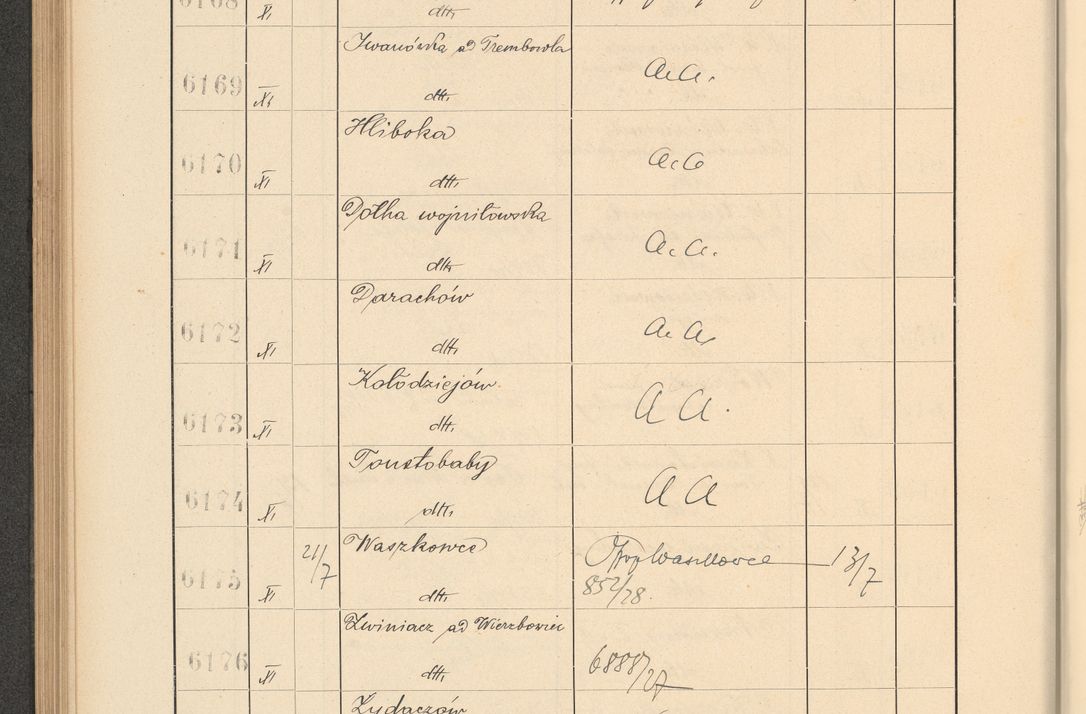 6168 XI dtto
Iwanówka ad Trembowla
6169 XI dtto a.a.
Hliboka
6170 XI dtto a.a
Dołha wojniłowska
6171 XI dtto a.a.
Darachów
6172 XI dtto a.a.
Kołodziejów
6173 XI dtto a a.
Toustobaby
6174 XI dtto a a
21/7 Waszkowce 13/7
6175 XI dtto 852/28.
Zwiniacz ad Wierzbowiec
6176 XI dtto 6888/27
Żydaczów